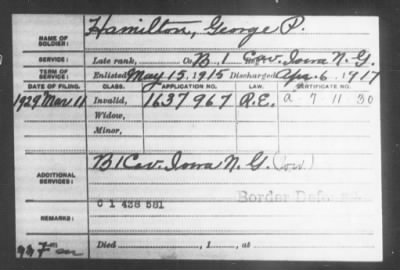 NAME OF SOLDIER: Hamilton, George P.
SERVICE: Late rank, Co. B, 1 Cav. Iowa N. G.
TERM OF SERVICE: Enlisted May 15, 1915 Discharged Apr. 6, 1917
DATE OF FILING. CLASS. APPLICATION NO. LAW. CERTIFICATE NO.
1929 Mar 11 Invalid, 1637967 R.E. a-7-11-30
Widow,
Minor,
ADDITIONAL SERVICES: B 1 Cav. Iowa N. G. (ow)
C 1 428 581
Border
REMARKS:
Died , 1 , at